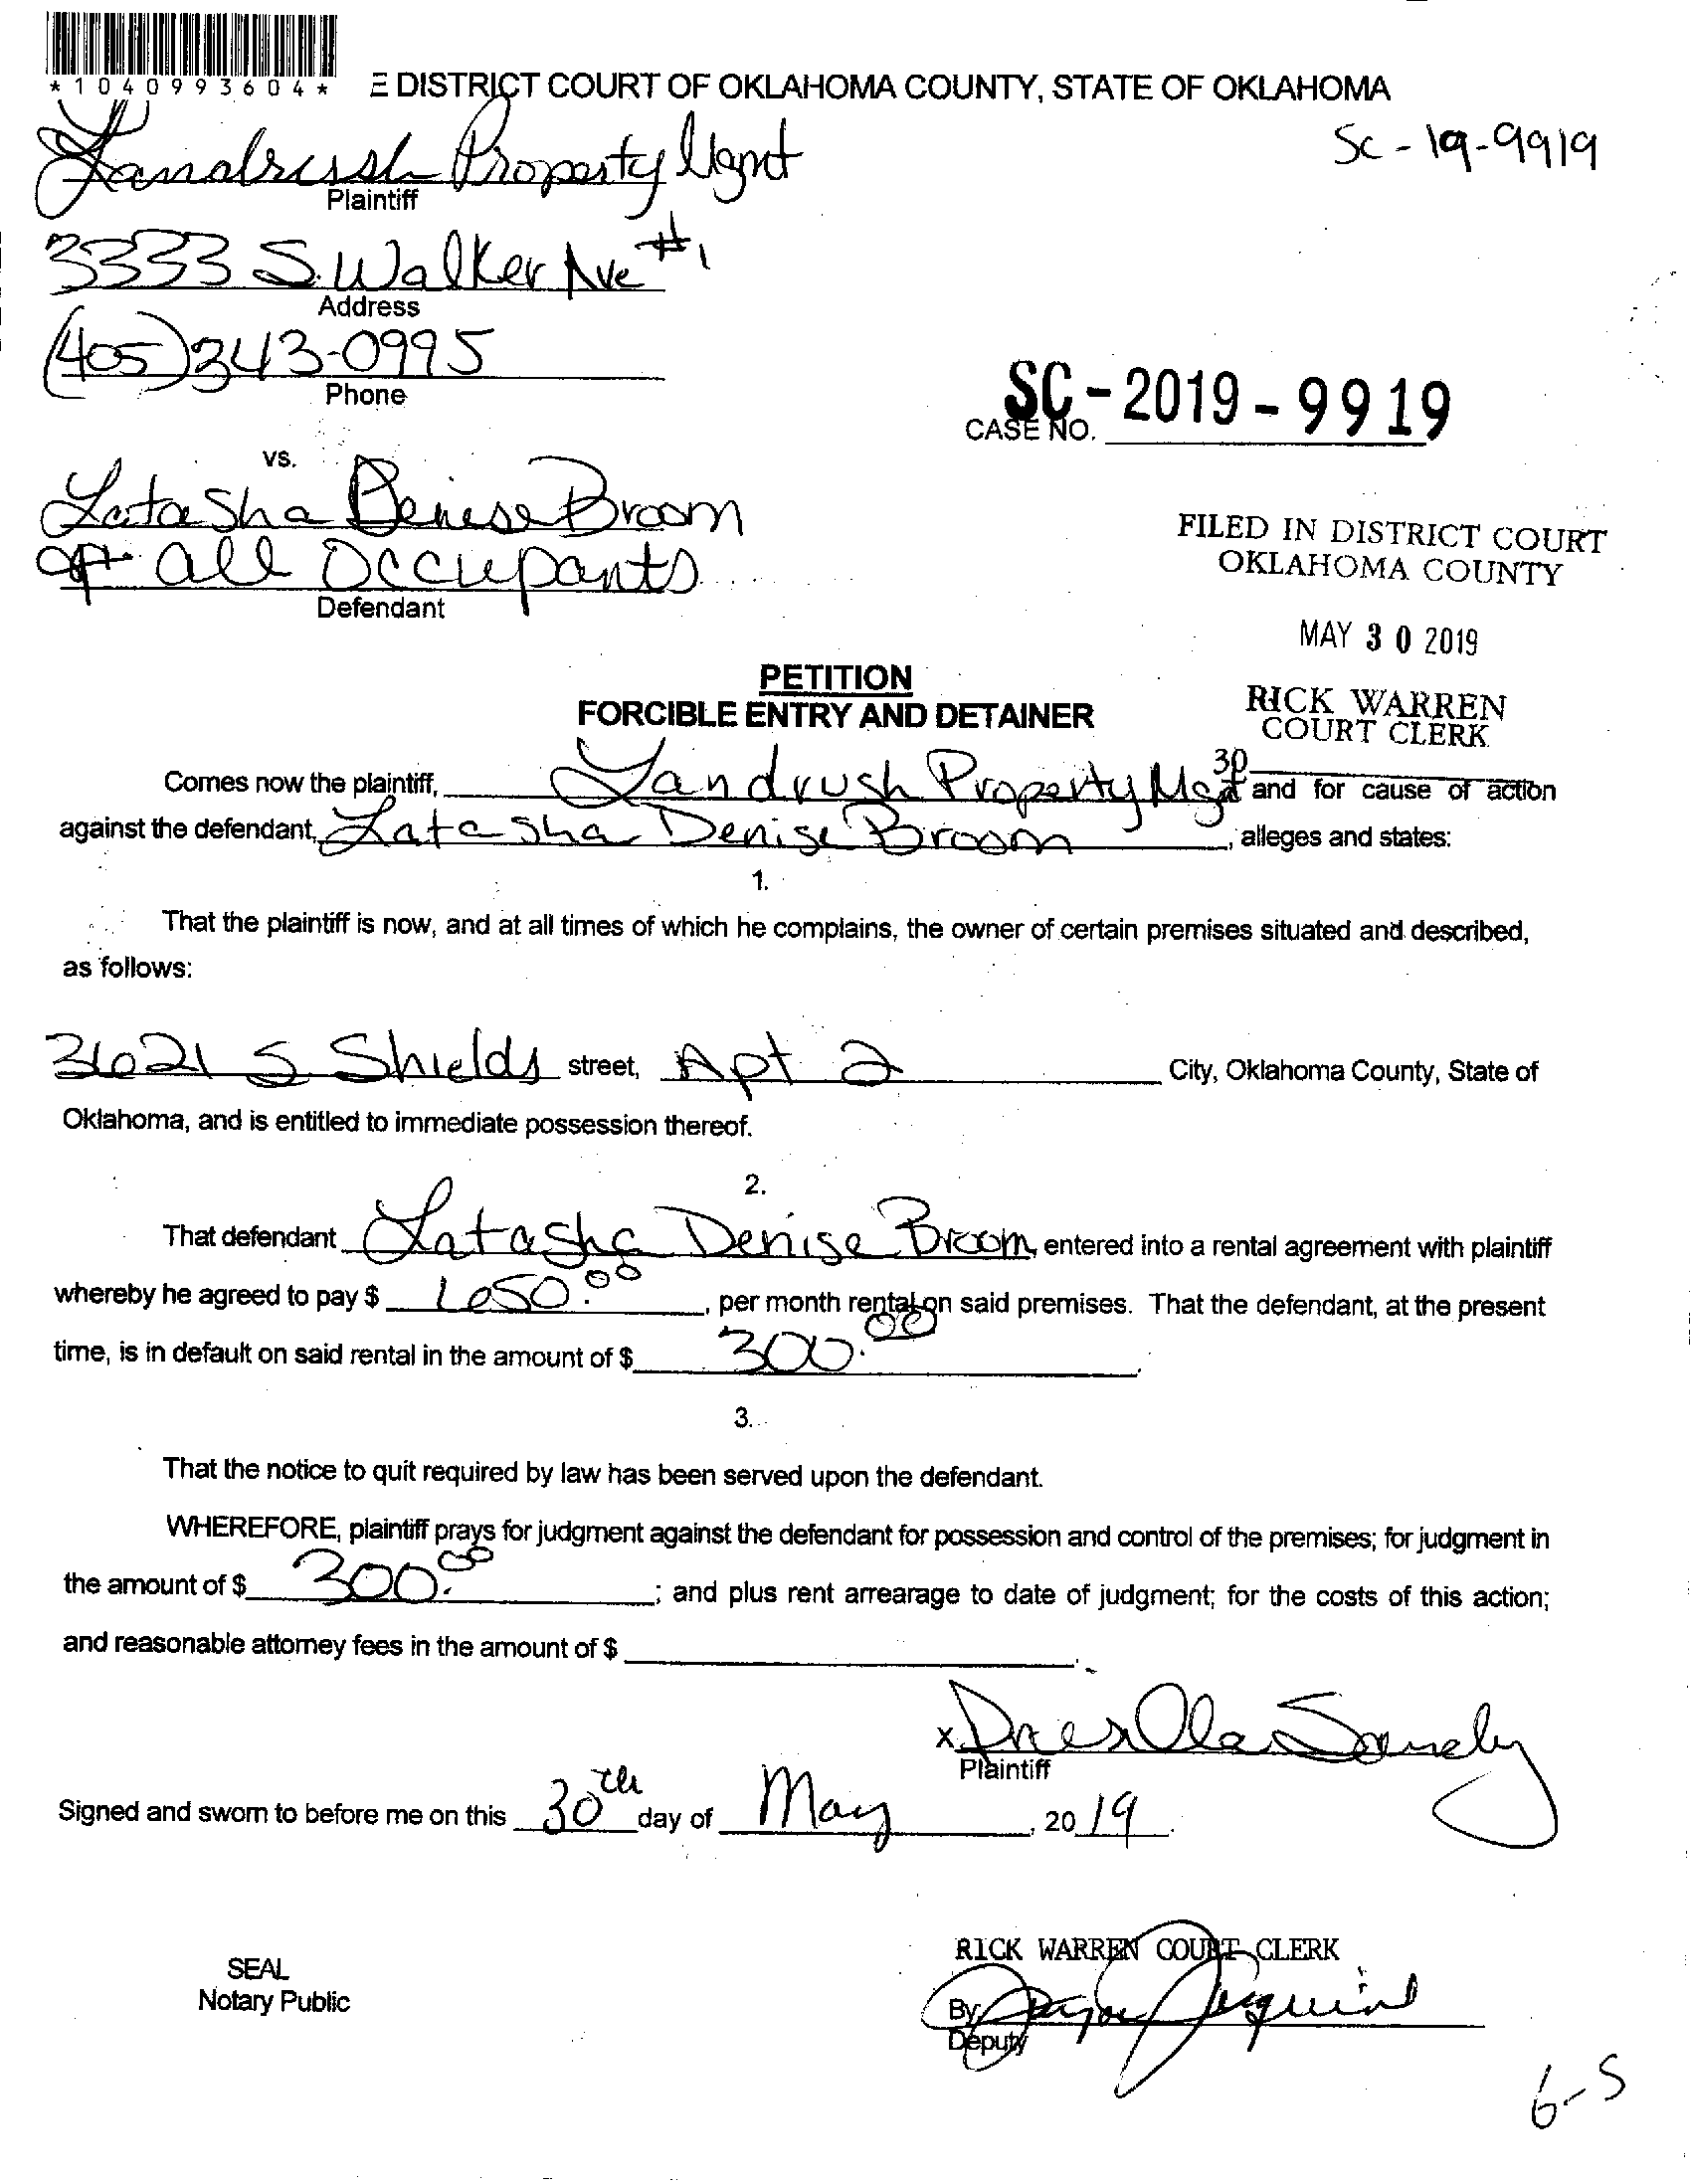 *1040993604*
E DISTRICT COURT OF OKLAHOMA COUNTY, STATE OF OKLAHOMA
SC-19-9919
Landrush Property Mgmt
Plaintiff
3333 S. Walker Ave #1
Address
(405) 343-0995
Phone
SC-2019-9919
CASE NO.
vs.
Latasha Denise Broom
all Occupants
Defendant
FILED IN DISTRICT COURT
OKLAHOMA COUNTY
MAY 30 2019
RICK WARREN
COURT CLERK
30
PETITION
FORCIBLE ENTRY AND DETAINER
Comes now the plaintiff, Landrush Property Mgt and for cause of action
against the defendant, Latasha Denise Broom, alleges and states:
1.
That the plaintiff is now, and at all times of which he complains, the owner of certain premises situated and described,
as follows:
3621 S Shields street, Apt 2 City, Oklahoma County, State of
Oklahoma, and is entitled to immediate possession thereof.
2.
That defendant Latasha Denise Broom, entered into a rental agreement with plaintiff
whereby he agreed to pay $ 650.00, per month rental on said premises. That the defendant, at the present
time, is in default on said rental in the amount of $ 300.00.
3.
That the notice to quit required by law has been served upon the defendant.
WHEREFORE, plaintiff prays for judgment against the defendant for possession and control of the premises; for judgment in
the amount of $ 300.00; and plus rent arrearage to date of judgment; for the costs of this action;
and reasonable attorney fees in the amount of $
x
Plaintiff
Signed and sworn to before me on this 30th day of May, 2019.
RICK WARREN COURT CLERK
SEAL
Notary Public
By
Deputy
6-5